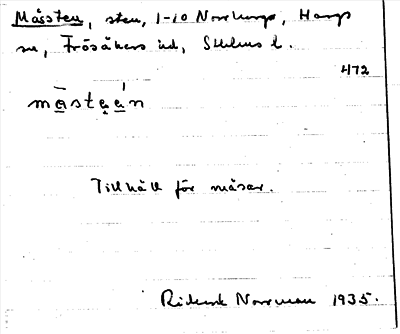 Måssten, sten, 1-10 Norrhunga, Hargs
sn, Frösåkers hd, Sthlms l.
472
måsteǻn
Tillhåll för måsar.
Rickard Norrman 1935.